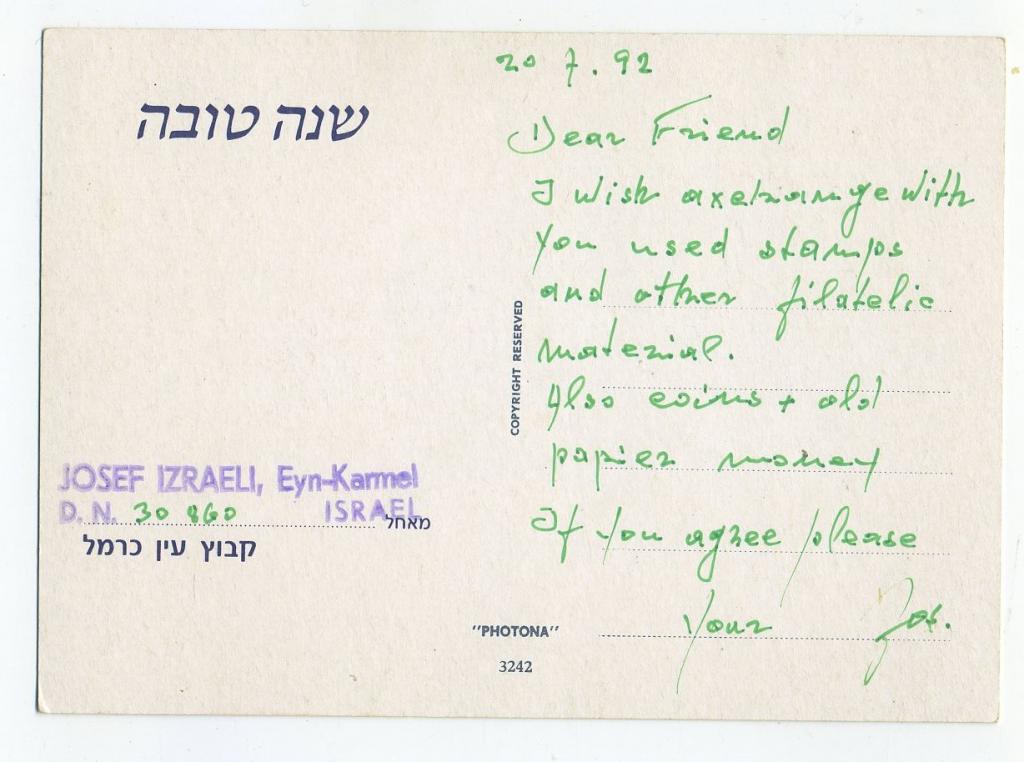 שנה טובה
20 7. 92
Dear Friend
I wish axchange with
you used stamps
and other filatelic
material.
Also coins + old
papier money
If you agree please
Your Jos.
COPYRIGHT RESERVED
JOSEF IZRAELI, Eyn-Karmel
D. N. 30 860 ISRAEL
מאחל
קבוץ עין כרמל
"PHOTONA"
3242